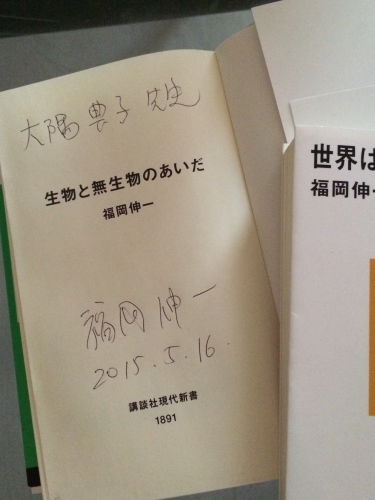 大隅典子 先生
生物と無生物のあいだ
福岡伸一
福岡伸一
2015.5.16.
講談社現代新書
1891
世界は
福岡伸一